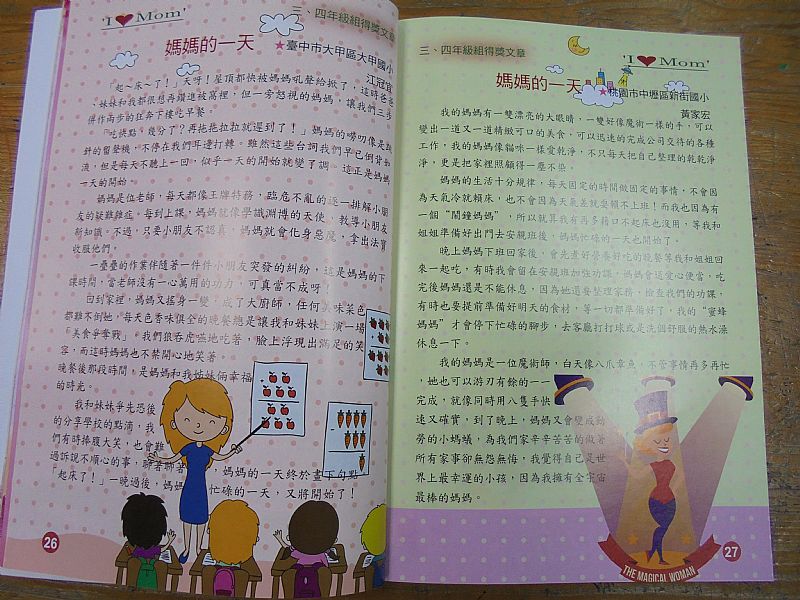 'I ❤ Mom'
三、四年級組得獎文章
媽媽的一天
★臺中市大甲區大甲國小
江冠宜
「起~床~了!」天呀!屋頂都快被媽媽吼聲給掀了,這時爸爸
、妹妹和我都很想再鑽進被窩裡,但一旁怒視的媽媽,讓我們三步
併作兩步的狂奔下樓吃早餐。
「吃快點,幾分了?再拖拖拉拉就遲到了!」媽媽的嘮叨像是跳
針的留聲機,不停在我們耳邊打轉。雖然這些台詞我們早已倒背如
流,但是每天不聽上一回,似乎一天的開始就變了調。這正是媽媽
一天的開始。
媽媽是位老師,每天都像王牌特務,臨危不亂的逐一排解小朋
友的疑難雜症。每到上課,媽媽就像學識淵博的天使,教導小朋友
新知識。不過,只要小朋友不認真,媽媽就會化身惡魔,拿出法寶
收服他們。
一疊疊的作業伴隨著一件件小朋友突發的糾紛,這是媽媽的下
課時間,當老師沒有一心萬用的功力,可真當不成呀!
回到家裡,媽媽又搖身一變,成了大廚師,任何美味菜色
都難不倒她,每天色香味俱全的晚餐總是讓我和妹妹上演一場
「美食爭奪戰」。我們狼吞虎嚥地吃著,臉上浮現出滿足的笑
容,而這時媽媽也不禁開心地笑著。
晚餐後那段時間,是媽媽和我姊妹倆幸福
的時光。
我和妹妹爭先恐後
的分享學校的點滴,我
們有時捧腹大笑,也會難
過訴說不順心的事,聊著聊著
,媽媽的一天終於畫下句點
「起床了!」一晚過後,媽媽
忙碌的一天,又將開始了!
26
三、四年級組得獎文章
'I ❤ Mom'
媽媽的一天
★桃園市中壢區新街國小
黃家宏
我的媽媽有一雙漂亮的大眼睛,一雙好像魔術一樣的手,可以
變出一道又一道精緻可口的美食,可以迅速的完成公司交待的各種
工作,我的媽媽像貓咪一樣愛乾淨,不只每天把自己整理的乾乾淨
淨,更是把家裡照顧得一塵不染。
媽媽的生活十分規律,每天固定的時間做固定的事情,不會因
為天氣冷就賴床,也不會因為天氣差就耍賴不上班!而我也因為有
一個"鬧鐘媽媽",所以就算我有再多藉口不起床也沒用,等我和
姐姐準備好出門去安親班後,媽媽忙碌的一天也開始了。
晚上媽媽下班回家後,會先煮好營養好吃的晚餐等我和姐姐回
來一起吃,有時我會留在安親班加強功課,媽媽會送愛心便當,吃
完後媽媽還是不能休息,因為她還要整理家務、檢查我們的功課,
有時也要提前準備好明天的食材,等一切都準備好了,我的"蜜蜂
媽媽"才會停下忙碌的腳步,去客廳打打球或是洗個舒服的熱水澡
休息一下。
我的媽媽是一位魔術師,白天像八爪章魚,不管事情再多再忙
,她也可以游刃有餘的一一
完成,就像同時用八隻手快
速又確實,到了晚上,媽媽又會變成勤
勞的小螞蟻,為我們家辛辛苦苦的做著
所有家事卻無怨無悔,我覺得自己是世
界上最幸運的小孩,因為我擁有全宇宙
最棒的媽媽。
THE MAGICAL WOMAN
27